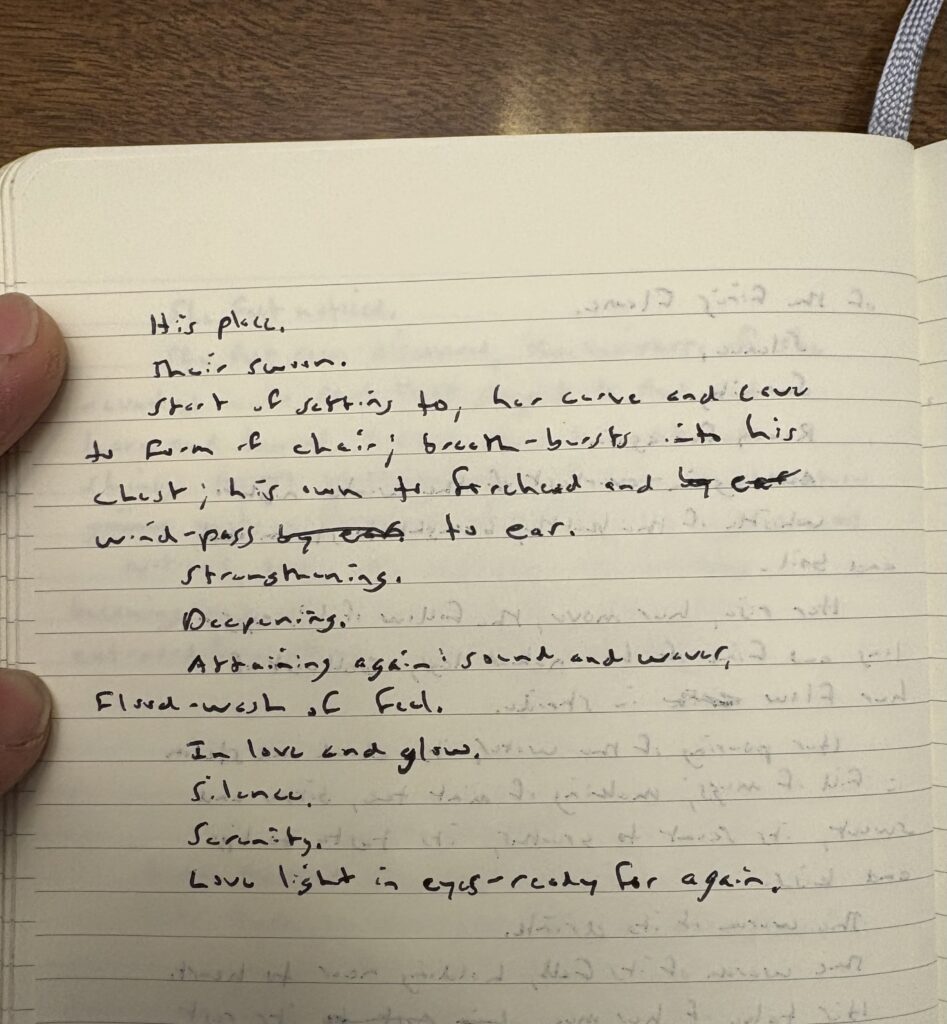 His place.
Their swoon.
Start of setting to, her curve and cave
to form of chair; breath-bursts into his
chest; his own to forehead and by ear
wind-pass by ear to ear.
Strengthening.
Deepening.
Attaining again: sound and waver,
Flood-wash of feel.
In love and glow.
Silence.
Serenity.
Love light in eyes-ready for again.